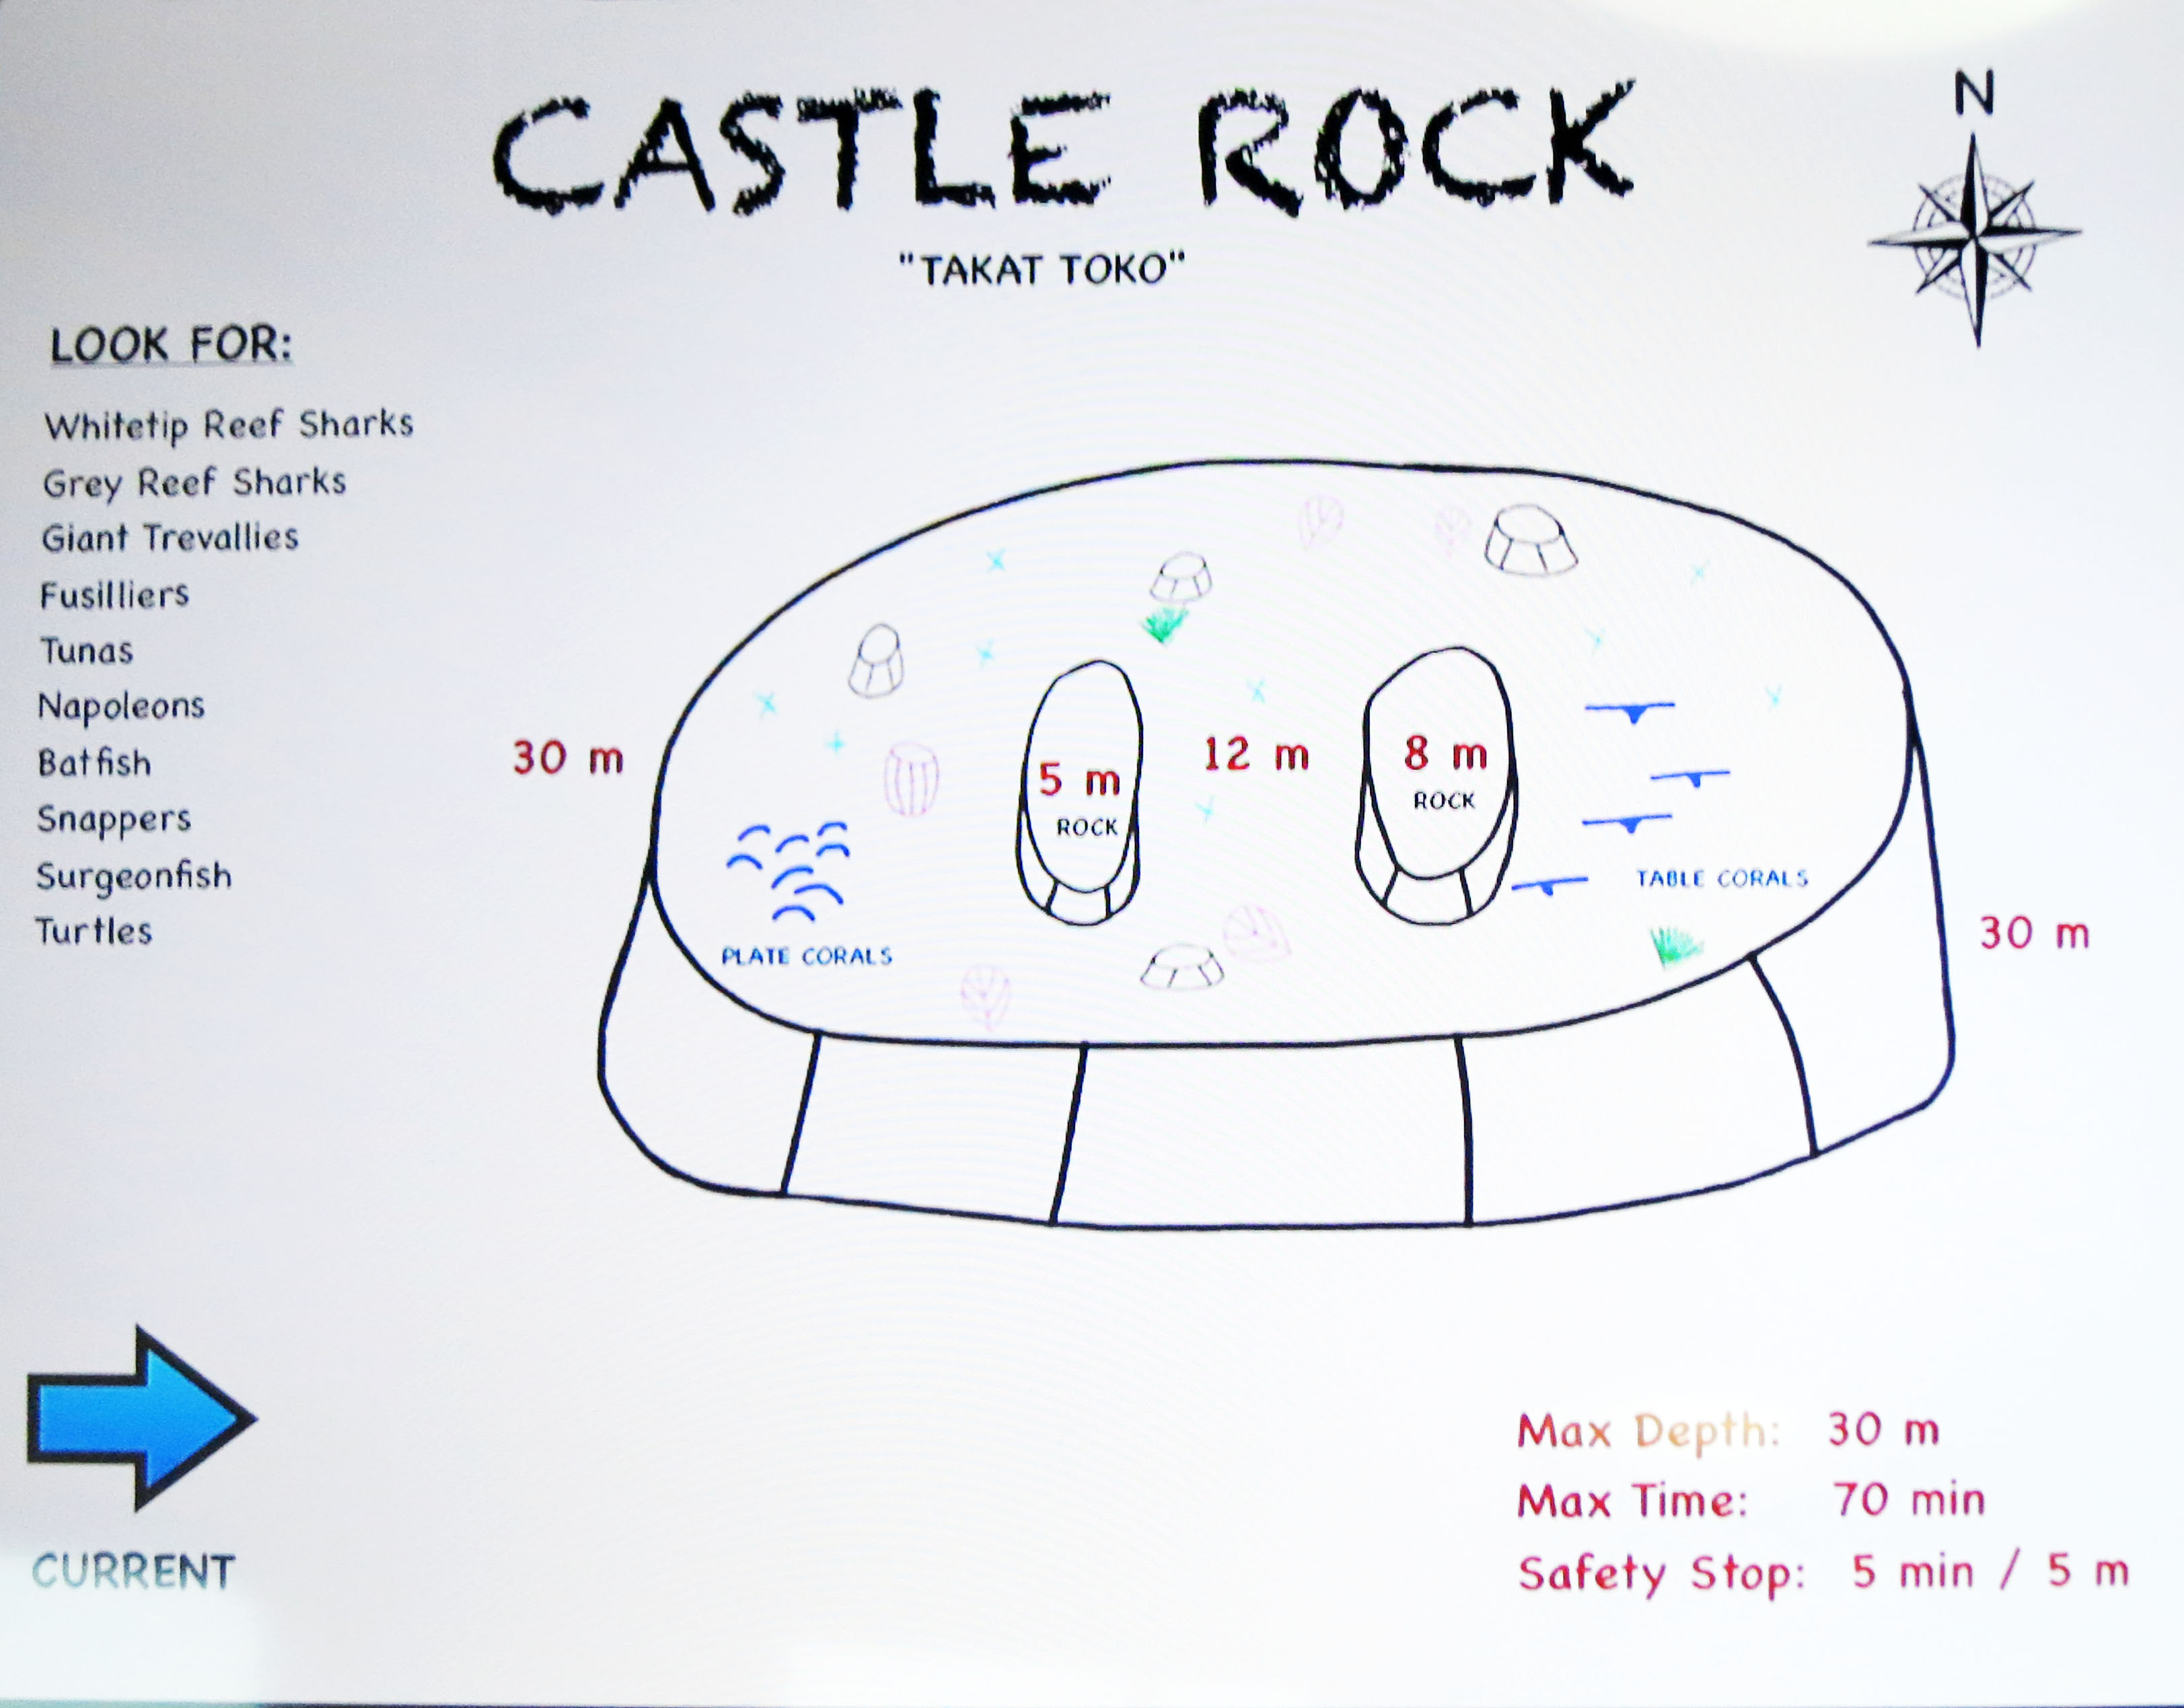 CASTLE ROCK
"TAKAT TOKO"
N
LOOK FOR:
Whitetip Reef Sharks
Grey Reef Sharks
Giant Trevallies
Fusilliers
Tunas
Napoleons
Batfish
Snappers
Surgeonfish
Turtles
30 m
5 m
ROCK
12 m
8 m
ROCK
PLATE CORALS
TABLE CORALS
30 m
CURRENT
Max Depth: 30 m
Max Time: 70 min
Safety Stop: 5 min / 5 m